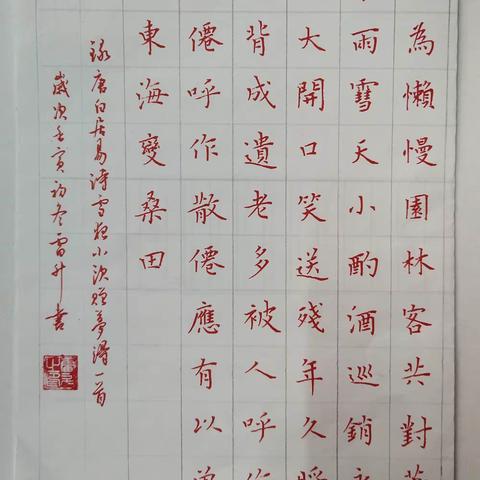 為懶慢園林客共對蕭
雨雪天小酌酒巡銷永
大開口笑送殘年久將
背成遺老多被人呼作
僊呼作散僊應有以曾
東海變桑田
錄唐白居易詩雪夜小飲贈夢得一首
歲次壬寅初冬雷升書